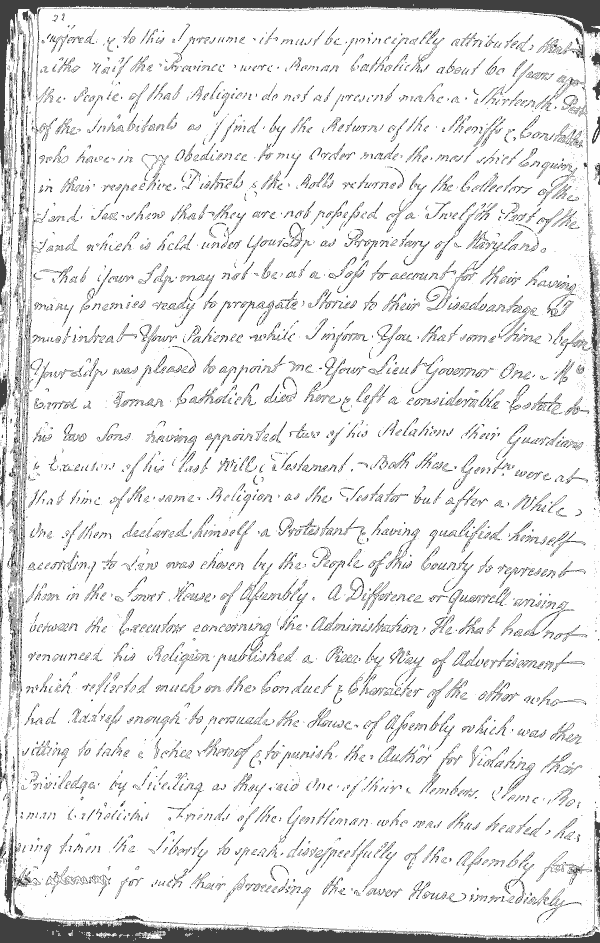 22
suffered & to this I presume it must be principally attributed that
altho half the Province were Roman Catholicks about 60 Years ago
the People of that Religion do not at present make a Thirteenth Part
of the Inhabitants as I find by the Returns of the Sheriffs & Constables
who have in Obedience to my Order made the most strict Enquiry
in their respective Districts & the Rolls returned by the Collectors of the
Land Tax shew that they are not possessed of a Twelfth Part of the
Land which is held under Your Ldp as Proprietary of Maryland.
That Your Ldp may not be at a Loss to account for their having
many Enemies ready to propagate Stories to their Disadvantage I
must intreat Your Patience while I inform You that some time before
Your Ldp was pleased to appoint me Your Lieut Governor One Mr
Carrol a Roman Catholick died here & left a considerable Estate to
his two Sons having appointed two of his Relations their Guardians
& Executors of his last Will & Testament. Both these Gentn were at
that time of the same Religion as the Testator but after a While
One of them declared himself a Protestant & having qualified himself
according to Law was chosen by the People of this County to represent
them in the Lower House of Assembly. A Difference or Quarrell arising
between the Executors concerning the Administration He that had not
renounced his Religion published a Piece by Way of Advertisement
which reflected much on the Conduct & Character of the other who
had Address enough to persuade the House of Assembly which was then
sitting to take Notice thereof & to punish the Author for Violating their
Priviledge by Libelling as they said One of their Members. Some Ro-
man Catholicks Friends of the Gentleman who was thus treated ha-
ving taken the Liberty to speak disrespectfully of the Assembly
for such their proceeding the Lower House immediately